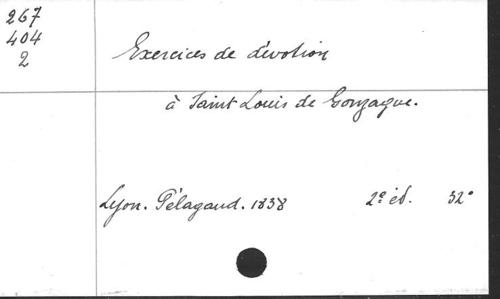 267
404
2
Exercices de dévotion
à Saint Louis de Gonzague.
Lyon. Pélagaud. 1838 2e éd. 32°